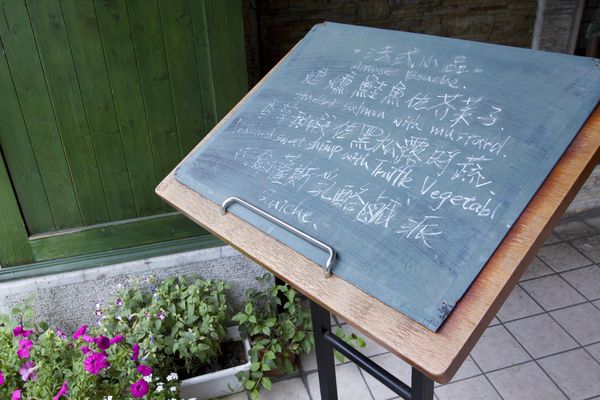 法式小品
Amuse Bouche.
煙燻鮭魚佐芥茉子
smoked salmon with mustard.
佐黑松露時蔬
sweet shrimp with Truffle Vegetabl
乳酪鹹派
Quiche.